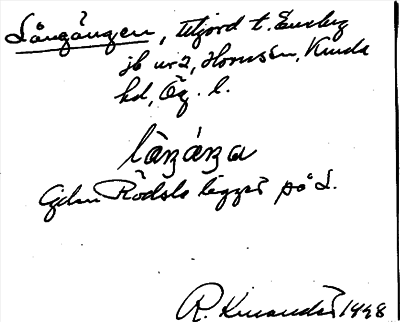 Långängen, utjord t. Eneby
jb nr 2, Hornsån, Kinda
hd, Ög. l.
låŋäŋa
Gden Rödsle ligger på L.
R. Kinander 1948